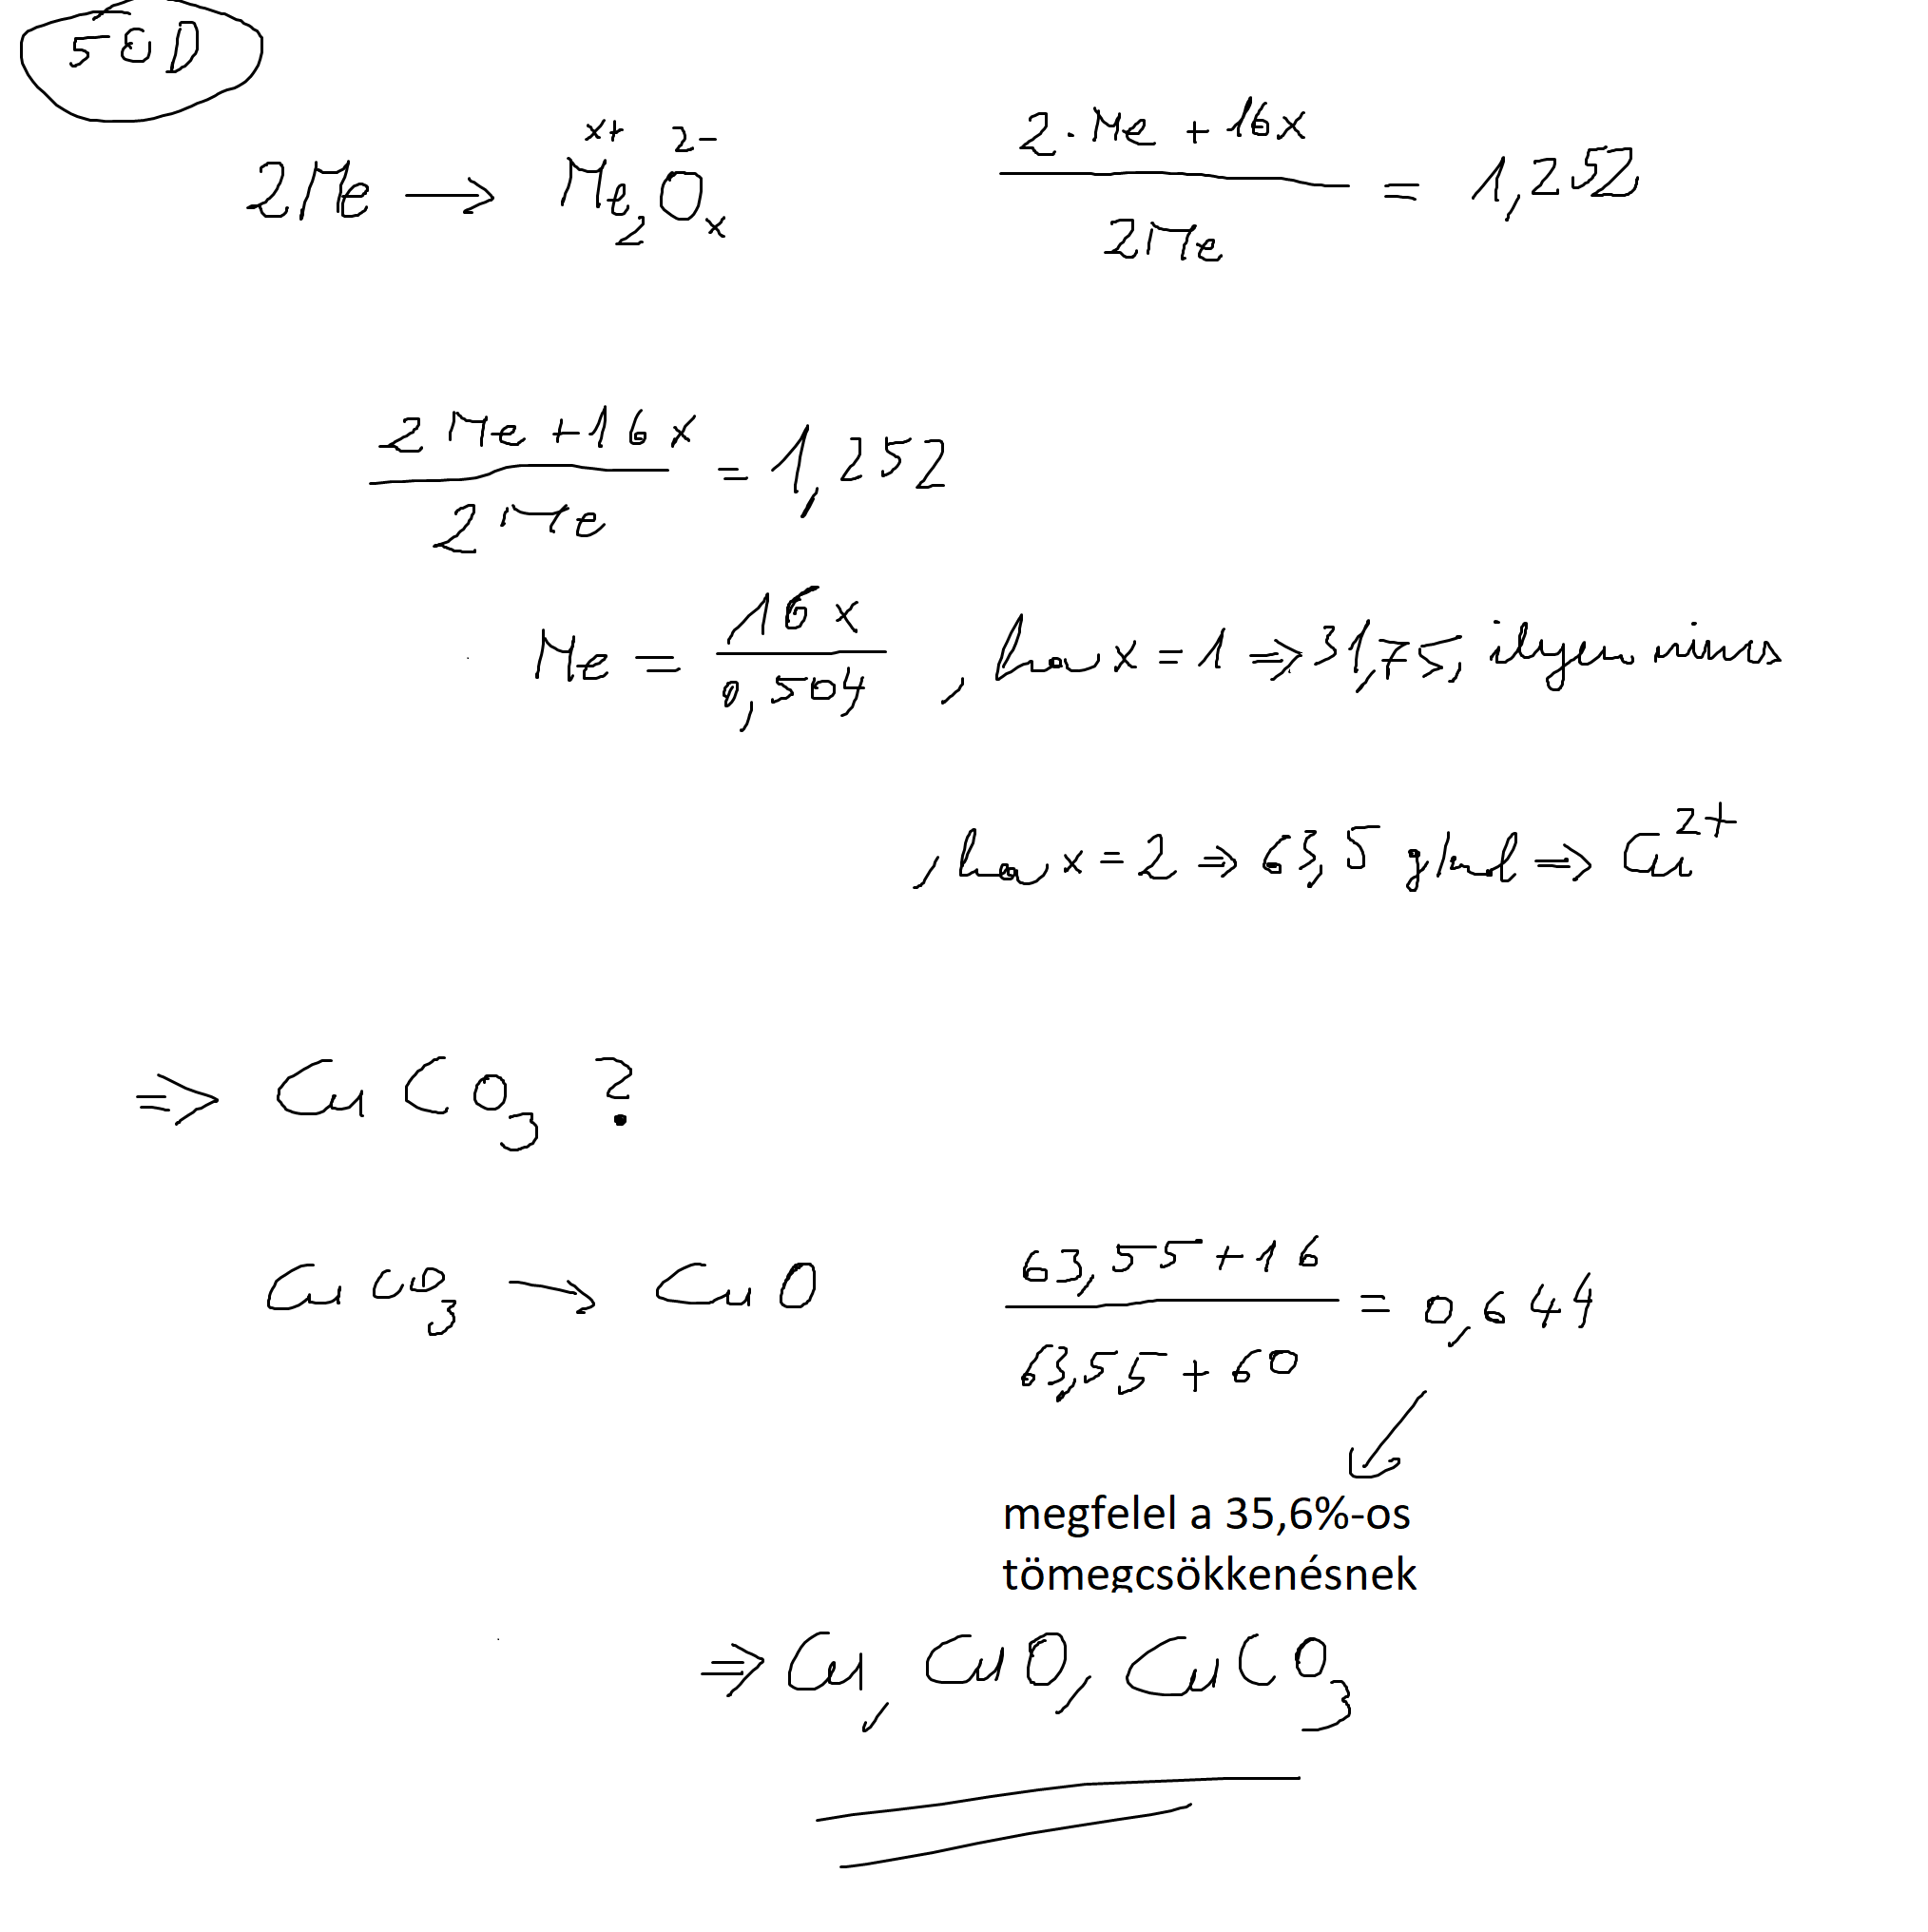 58D
x+ 2-
2Me → Me₂Oₓ (2·Me + 16x)/(2Me) = 1,252
(2Me + 16x)/(2Me) = 1,252
Me = 16x/0,504 , ha x = 1 ⇒ 31,75, ilyen nincs
, ha x = 2 ⇒ 63,5 g/mol ⇒ Cu²⁺
⇒ CuCO₃ ?
CuCO₃ → CuO (63,55 + 16)/(63,55 + 60) = 0,644
megfelel a 35,6%-os
tömegcsökkenésnek
⇒ Cu, CuO, CuCO₃